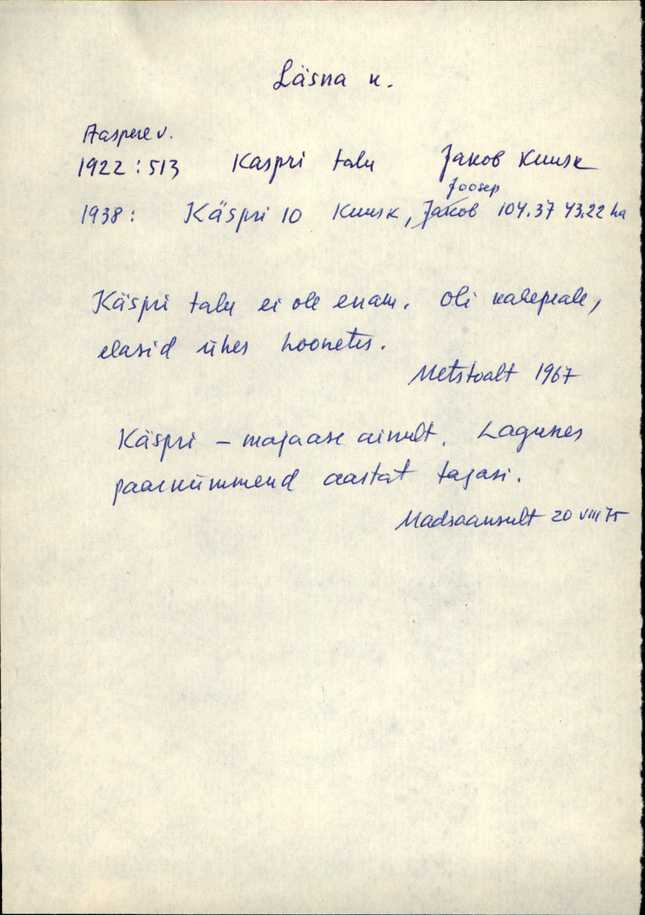 Läsna k.
Aaspere v.
1922:513 Kaspri talu Jakob Kuusk
Joosep
1938: Käspri 10 Kuusk, Jakob 104.37 43,22 ha
Käspri talu ei ole enam. Oli kahepeale,
elasid ühes hoonetes.
Metstoalt 1967
Käspri – majaase ainult. Lagunes
paarkümmend aastat tagasi.
Madsaansult 20 VIII 75